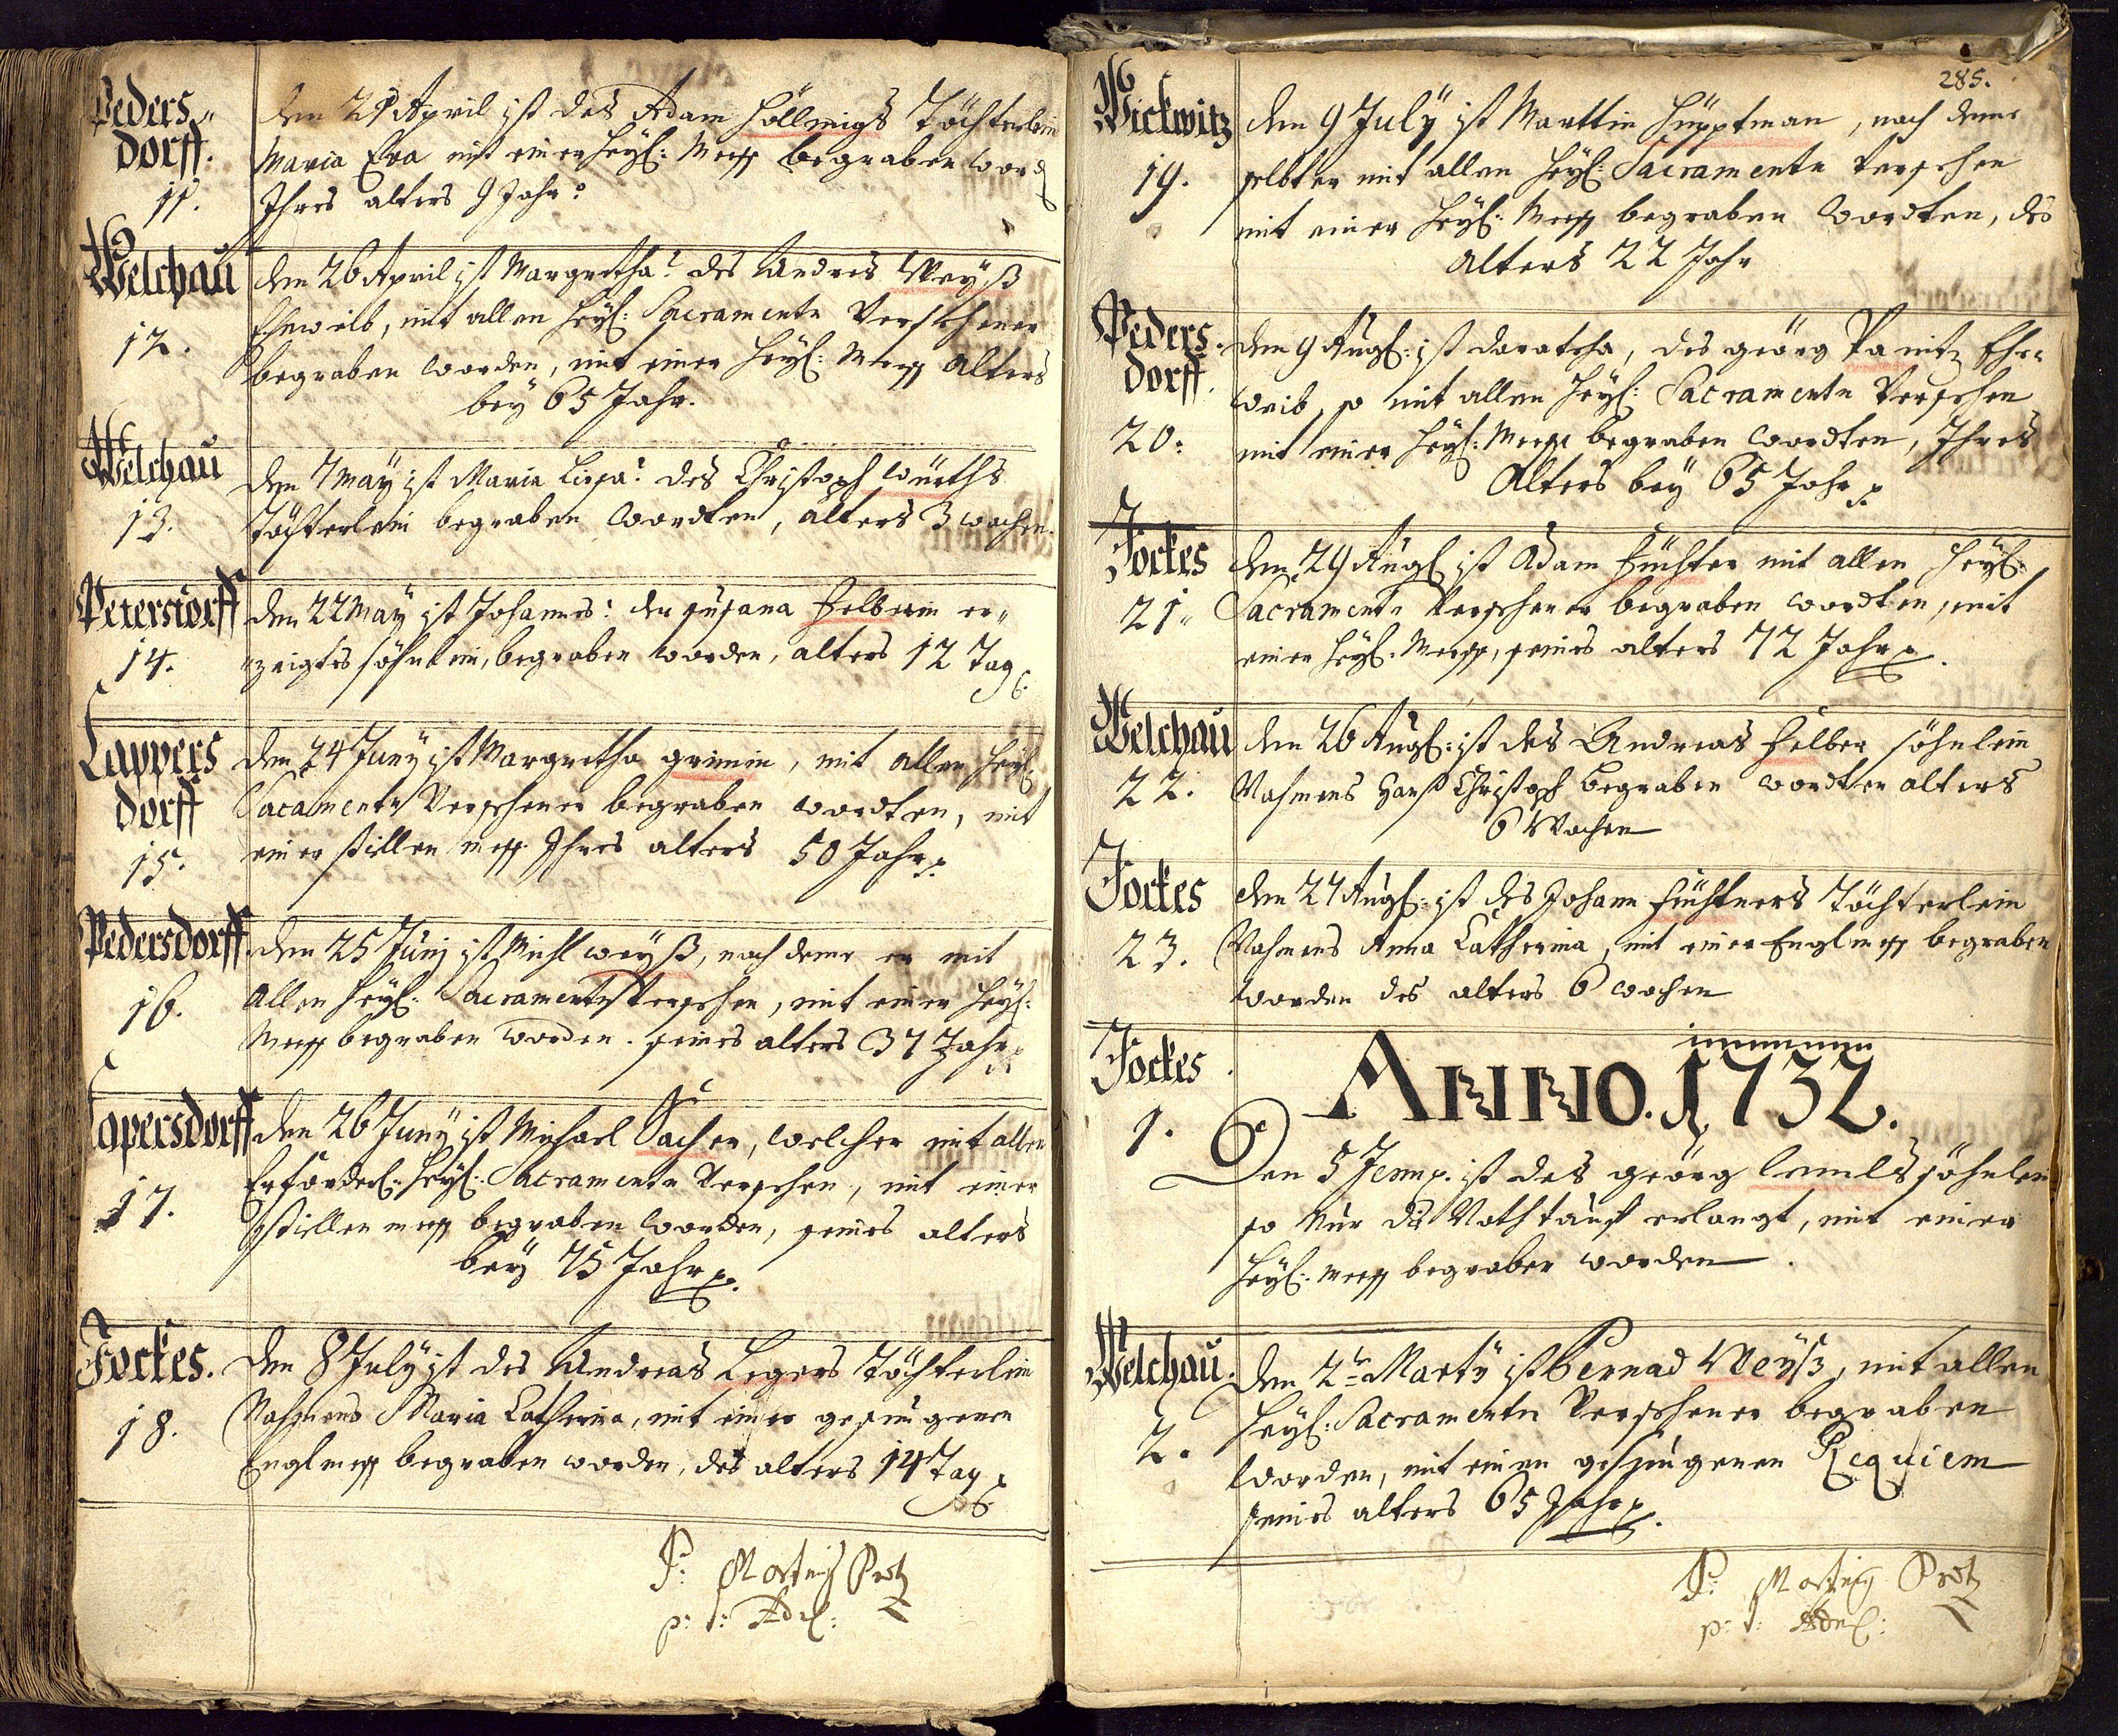 Peders„
dorff.
11.
den 21 April ist des Adam Höllmigs Töchterlein
Maria Eva mit einer Heyl: Mess begraben word
Ihres alters 9 Jahr:
Welchau
12.
den 26 April ist Margretha: des Andres Weyß
Eheweib, mit allen Heyl: Sacramentn Versehener
begraben worden, mit einer Heyl: Mess Alters
bey 65 Jahr.
Welchau
13.
den 7 May ist Maria Lisa: des Christoph Würths
Töchterlein begraben wordten, alters 3 wochen.
Peterstorff
14.
den 22 May ist Johannes: der susana Helberin er„
„zeigtes söhnlein, begraben worden, alters 12 Tag
Lappers
dorff
15.
den 24 Juny ist Margretha grimin, mit allen Heyl:
Sacamentn Versehener begraben wordten, mit
einer stillen mess. Ihres alters 50 Jahr
Pedersdorff
16.
den 25 Junj ist Michl weyß, nach deme er mit
allen Heyl: Sacramentn Versehen, mit einer Heyl:
Mess begraben worden. seines alters 37 Jahr
Lapersdorff
17.
den 26 Juny ist Michael Sacher, welcher mit allen
Erforderl: Heyl: Sacramentn Versehen, mit einer
stillen mess begraben worden, seines alters
bey 75 Jahr
Fockes.
18.
den 8 July ist des Andreas Legers Töchterlein
Nahmens Maria Catherina, mit einer gesungenen
Englmess begraben worden, des alters 14 Tag
P: Martin
p: t: Adm:
285.
Wickwitz
19.
den 9 July ist Marttin Hüpptman, nach deme
selbter mit allen Heyl: Sacramentn Versehen
mit einer Heyl: Mess begraben wordten, des
Alters 22 Jahr
Peders.
dorff.
20:
den 9 Augs: ist daratcha, des geörg Panitz Ehe„
weib, so mit allen Heyl: Sacramentn Versehen
mit einer Heyl: Mess begraben wordten, Ihres
Alters bey 65 Jahr
Fockes
21.
den 29 Augs ist Adam Füchter mit allen Heyl:
Sacramentn Versehener begraben wordten, mit
einer Heyl: Mess, seines alters 72 Jahr
Welchau
22.
den 26 Augs: ist des Andreas Helber söhnlein
Nahmens Hanß Christoph begraben wordten alters
6 Wochen
Fockes
23.
den 27 Augs: ist des Johann Füchtners Töchterlein
Nahmens Anna Catherina, mit einer Englmess begraben
worden des alters 6 wochen
Fockes.
1.
ANNO. 1732.
Den 5 Jenn. ist des geörg lemls söhnlein
so Nur die Nothtauf erlangt, mit einer
Heyl: mess begraben worden.
Welchau.
2.
den 2te Marty ist Bernad Weyß, mit allen
Heyl: Sacramentn Versehener begraben
worden, mit einen gesungenen Requiem
seines alters 65 Jahr
P: Martin
p: t: Adm: